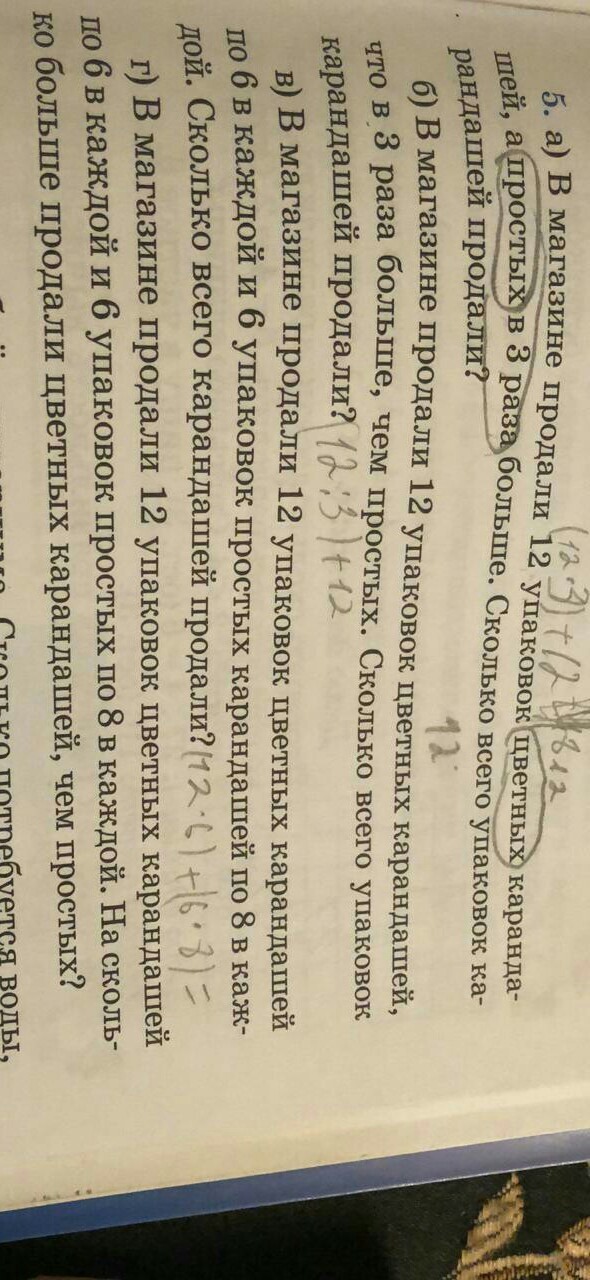 5. а) В магазине продали 12 упаковок цветных каранда-
шей, а простых в 3 раза больше. Сколько всего упаковок ка-
рандашей продали?
(12·3)+12
б) В магазине продали 12 упаковок цветных карандашей,
что в 3 раза больше, чем простых. Сколько всего упаковок
карандашей продали? (12:3)+12
12
в) В магазине продали 12 упаковок цветных карандашей
по 6 в каждой и 6 упаковок простых карандашей по 8 в каж-
дой. Сколько всего карандашей продали? (12·6)+(6·8)=
г) В магазине продали 12 упаковок цветных карандашей
по 6 в каждой и 6 упаковок простых по 8 в каждой. На сколь-
ко больше продали цветных карандашей, чем простых?
Сколько потребуется воды,